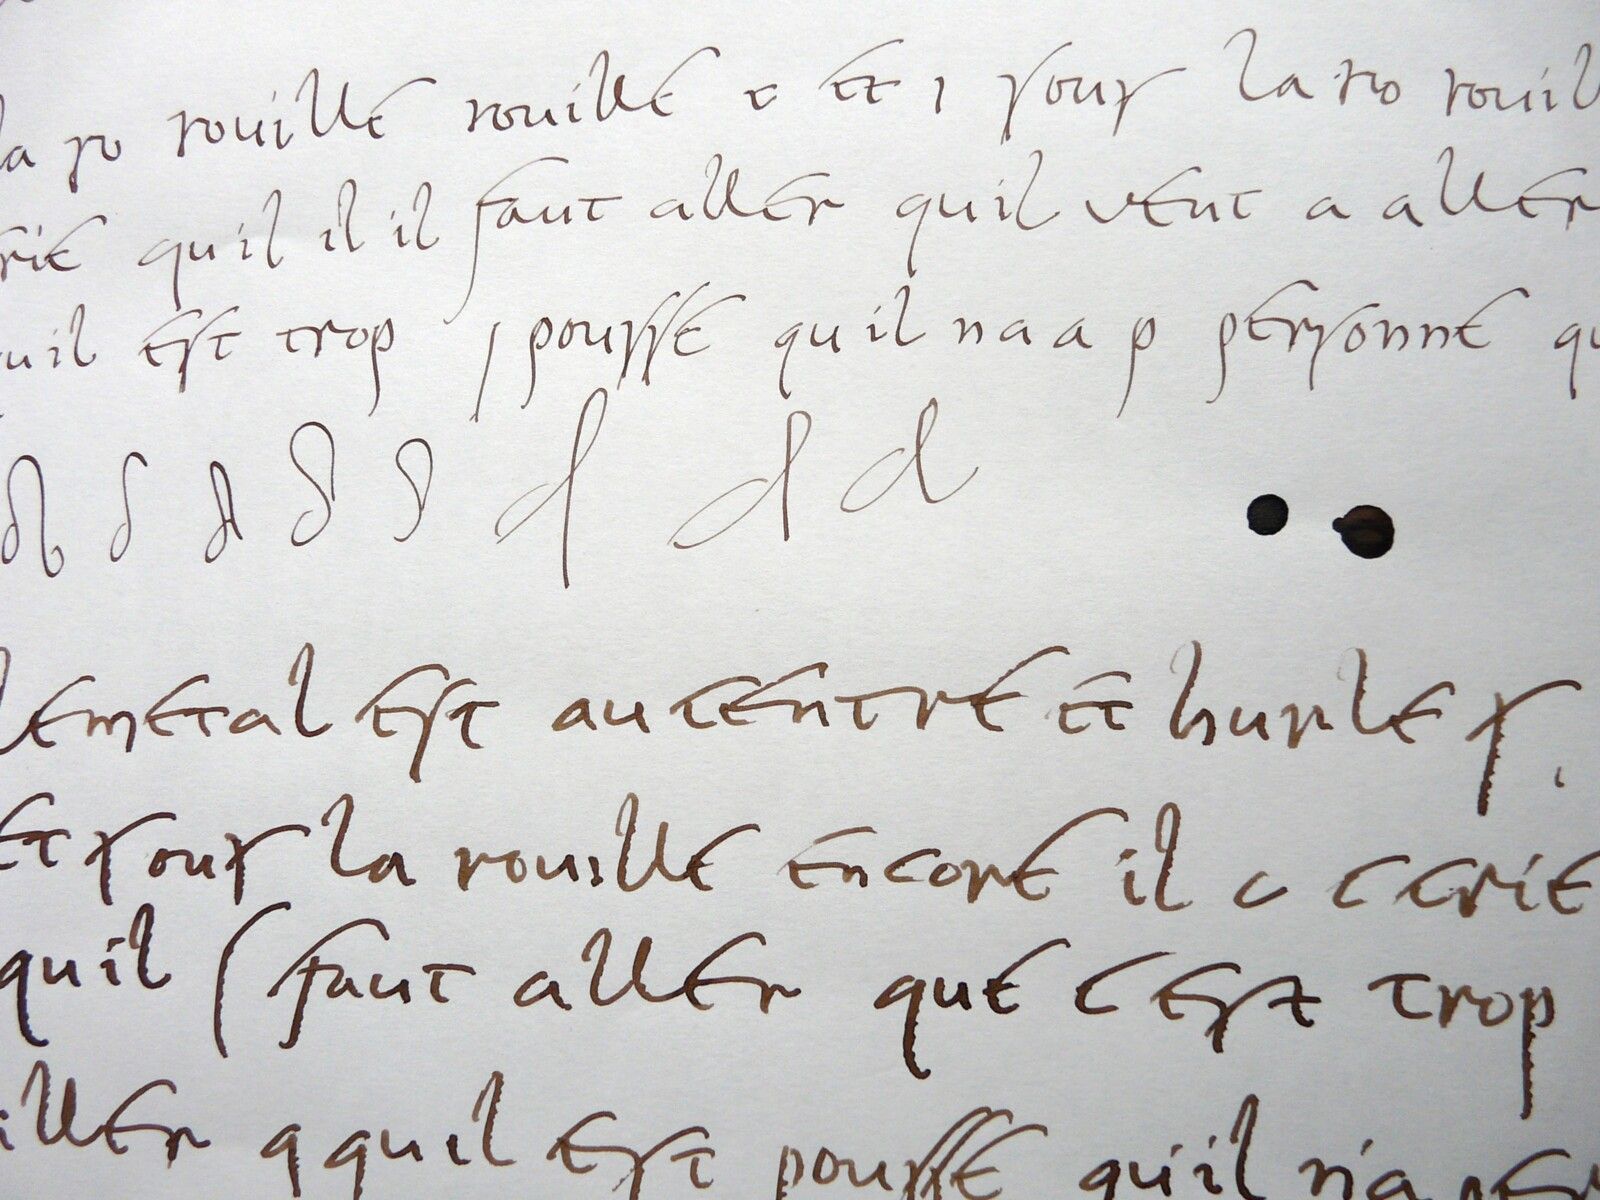 la ro rouille rouille c et , sous la ro rouil
rie quil il il faut aller quil veut a aller
uil est trop , pousse quil na a p personne qu
d d d d d d d d
le metal est au centre et hurle s
et sous la rouille encore il c c crie
quil faut aller que c est trop
aller q quil est pousse qu'il n'a per